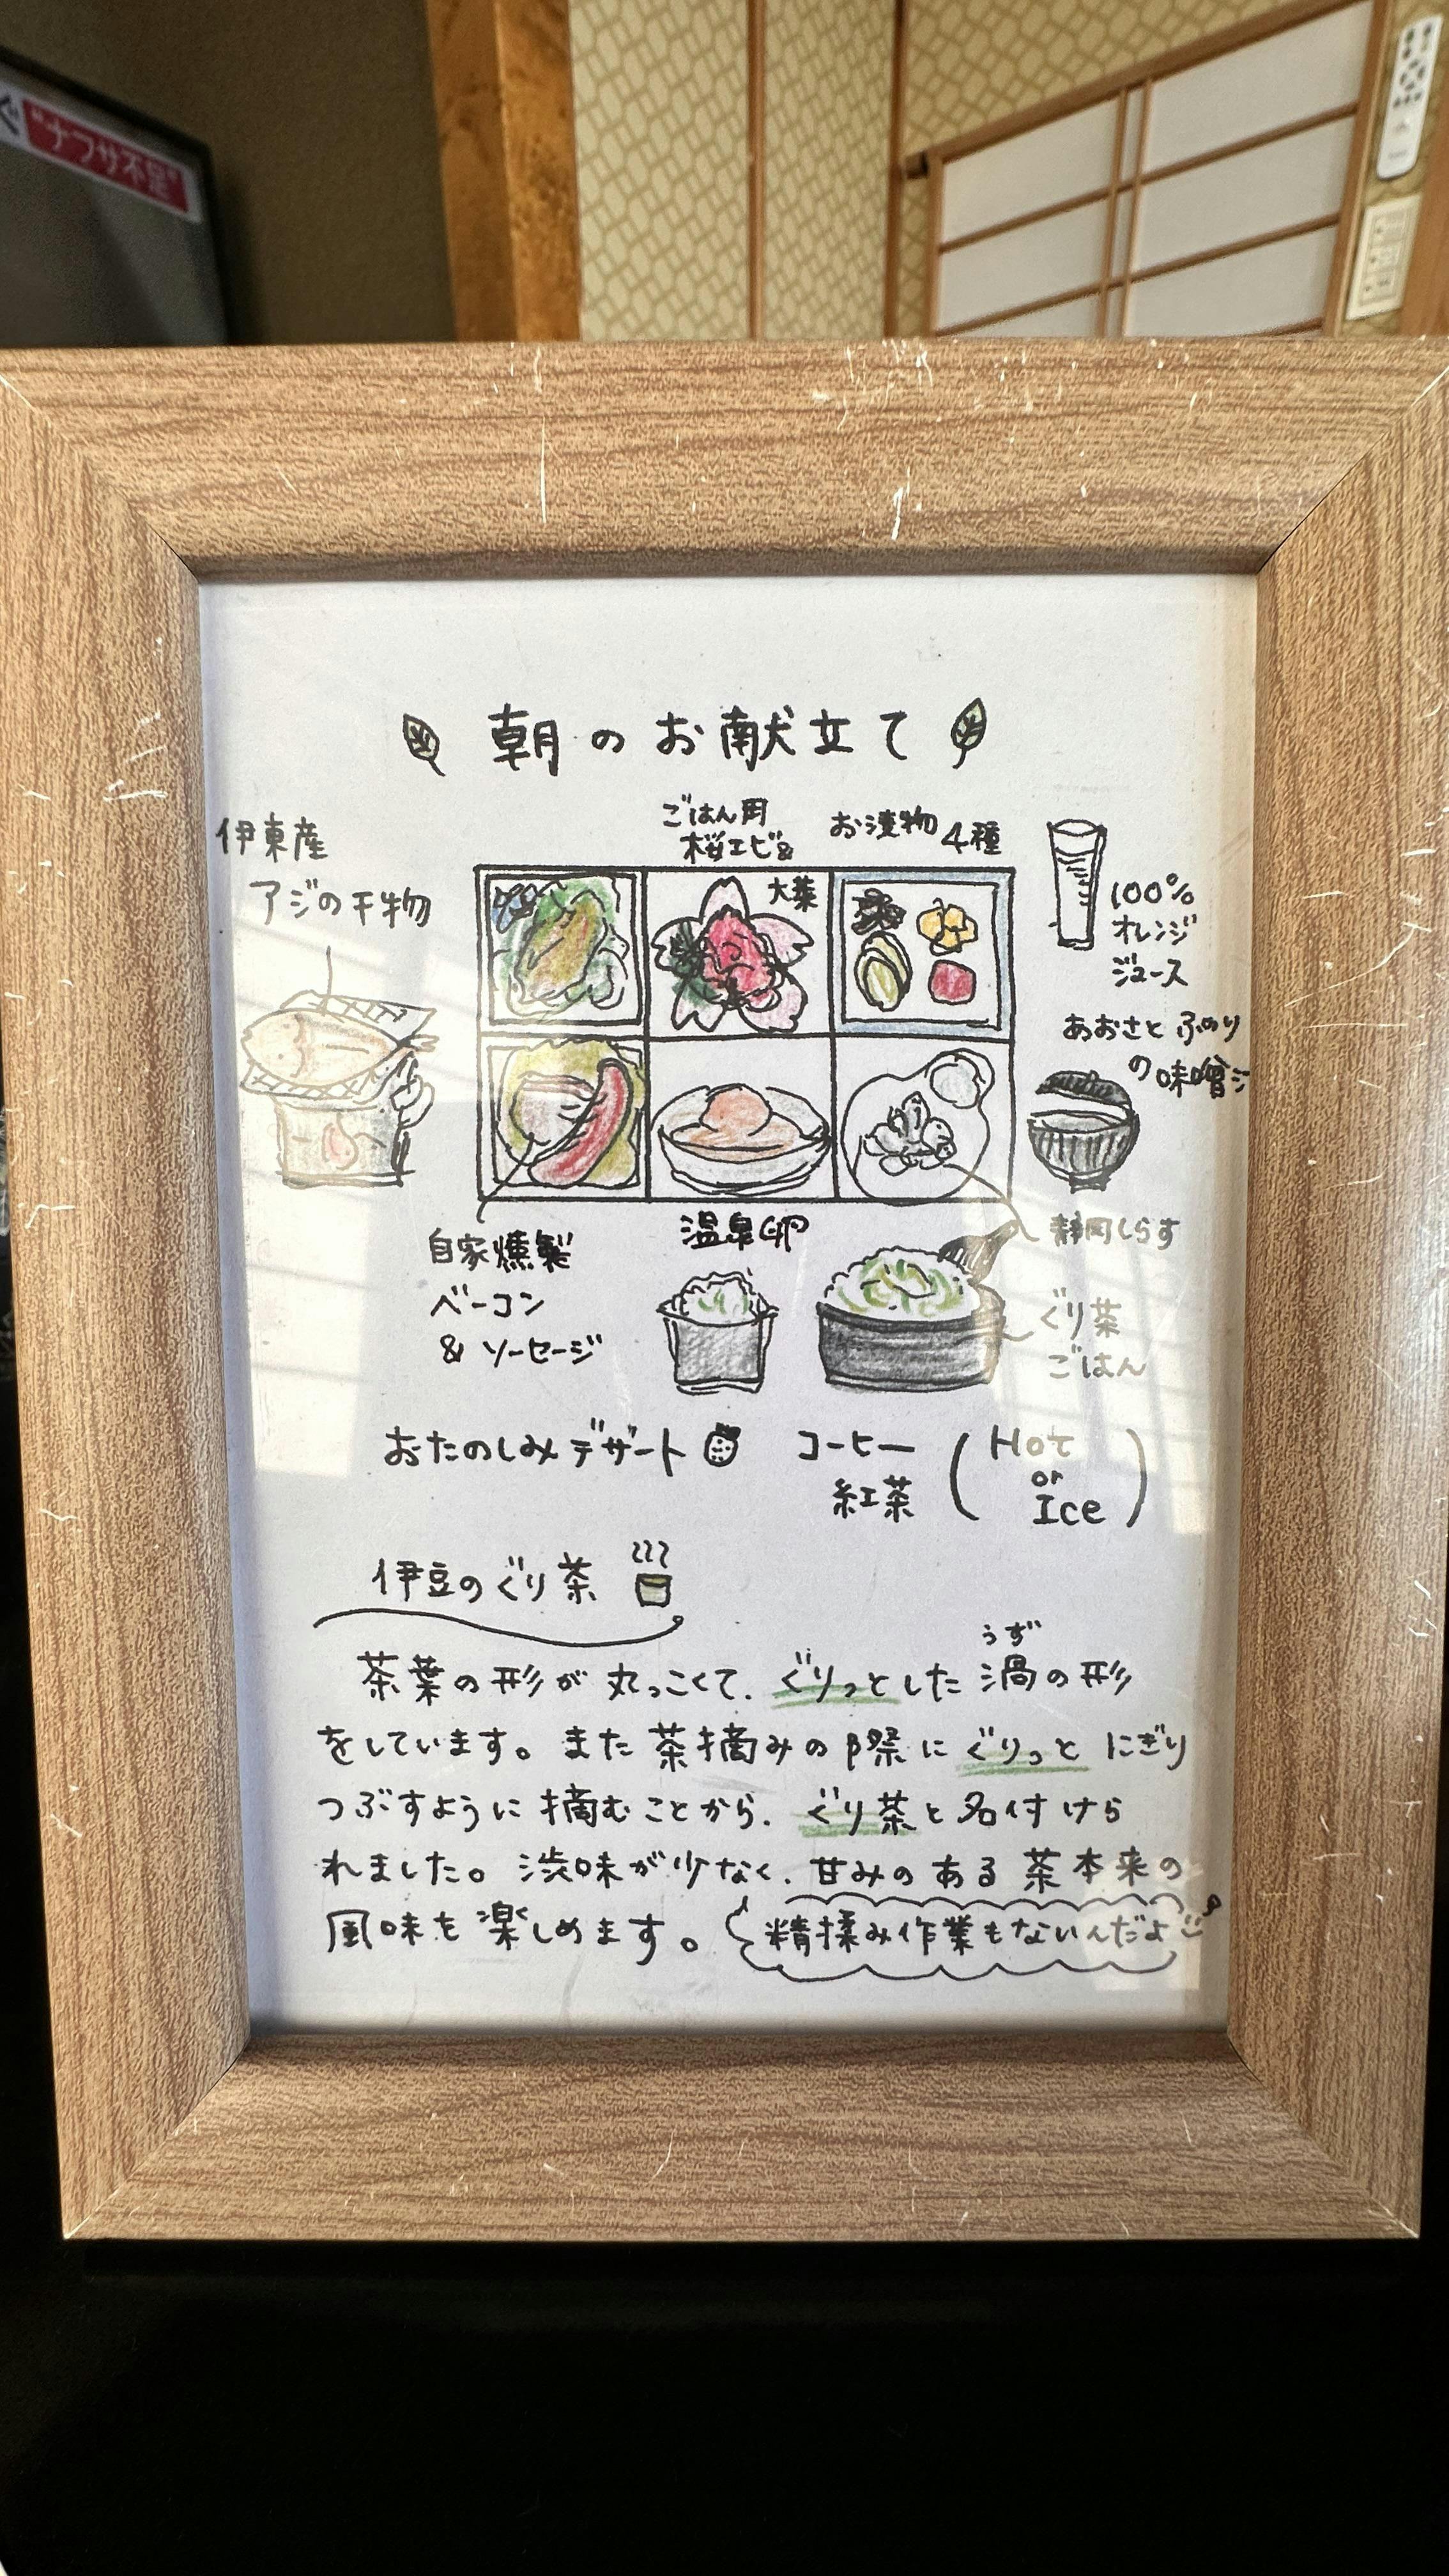 "ナフサ不足"
朝のお献立て
伊東産
アジの干物
ごはん用
桜エビ&
大葉
お漬物 4種
100%
オレンジ
ジュース
あおさと ふのり
の味噌
自家燻製
ベーコン
& ソーセージ
温泉卵
静岡しらす
ぐり茶
ごはん
おたのしみデザート
コーヒー
紅茶
(Hot
or
Ice)
伊豆のぐり茶
うず
茶葉の形が丸っこくて、ぐりっとした渦の形
をしています。また茶摘みの際にぐりっと にぎり
つぶすように摘むことから、ぐり茶と名付けら
れました。渋味が少なく、甘みのある茶本来の
風味を楽しめます。
精揉み作業もないんだよ